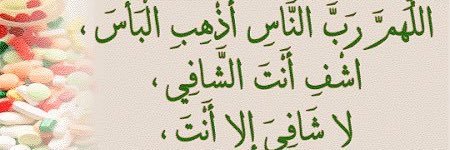 اللَّهُمَّ رَبَّ النَّاسِ أَذْهِبِ الْبَأْسَ ،
اشْفِ أَنْتَ الشَّافِي ،
لا شَافِيَ إِلا أَنْتَ ،